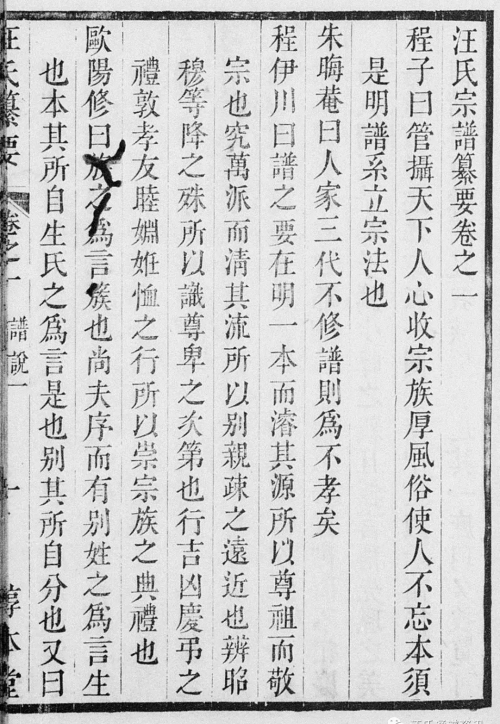 汪氏宗譜纂要卷之一
程子曰管攝天下人心收宗族厚風俗使人不忘本須
是明譜系立宗法也
朱晦菴曰人家三代不修譜則爲不孝矣
程伊川曰譜之要在明一本而濬其源所以尊祖而敬
宗也究萬派而清其流所以别親疎之遠近也辨昭
穆等降之殊所以識尊卑之次第也行吉凶慶弔之
禮敦孝友睦婣姙恤之行所以崇宗族之典禮也
歐陽修曰族之爲言簇也尚夫序而有别姓之爲言生
也本其所自生氏之爲言是也别其所自分也又曰
汪氏纂要 卷之一 譜說一 一 淳本堂